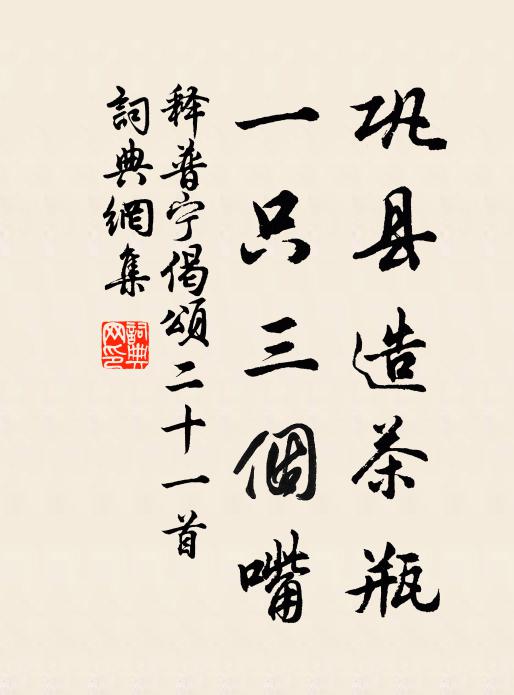 巩县造茶瓶
一只三個嘴
释普宁偈頌二十一首
詞典網集
詞典网印